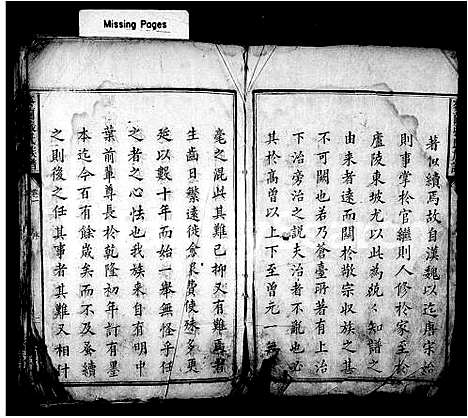 Missing Pages
著似續焉故自漢魏以迄唐宋始
則事掌於官繼則人修於家至於
廬陵東坡尤以此為兢兢知譜之
由来者遠而關於敬宗收族之甚
不可闕也若乃蒼臺所著有上治
下治旁治之說夫治者不亂也必
其於高曾以上下至曾元一無
毫之混與其難已抑又有難焉者
生齒日繁遠徙僉艮費使殊多更
延以數十年而始一舉無怪乎任
之者之心怯也我族来自有明中
葉前輩尊長於乾隆初年訂有墨
本迄今百有餘歲矣而不及蚤續
之則後之任其事者其難又相什